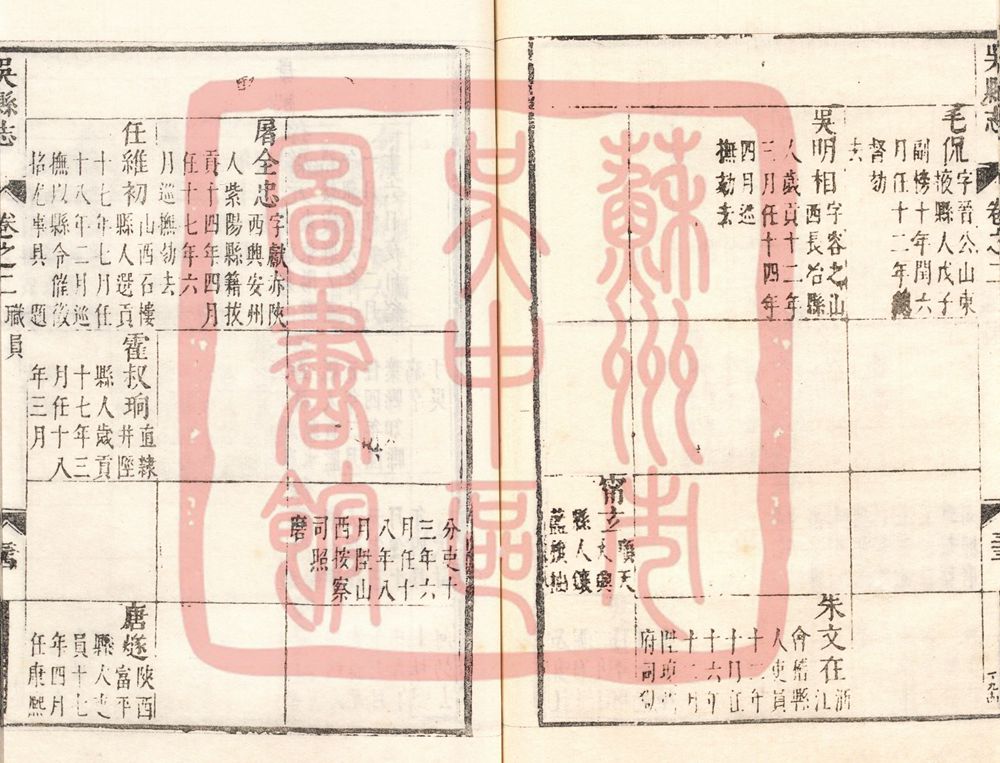 吳縣志
卷之二
毛侃字晉公山東
掖縣人戊子
副榜十年閏六
月任十二年
督劾
去
吳明相字容之山
西長治縣
人歲貢十二年
三月任十四年
四月巡
撫劾去
甯立順天
大興
縣人
朱文在浙江
會稽縣
人吏員
十二年
十月任
十六年
十二月
府司獄
蘇州市
吳中區
圖書館
分吏十
三年六
月任十
八年八
月陞山
西按察
司照
磨
屠全忠字獻赤陝
西興安州
人紫陽縣籍拔
貢十四年四月
任十七年六
月巡撫劾去
任維初山西石樓
縣人選貢
十七年七月任
十八年二月巡
撫以縣令催徵
掊尅事具題
霍叔珦直隸
井陘
縣人歲貢
十七年三
月任十八
年三月
唐遂陝西
富平
縣人吏
員十七
年四月
任康熙
吳縣志
卷之二
職員